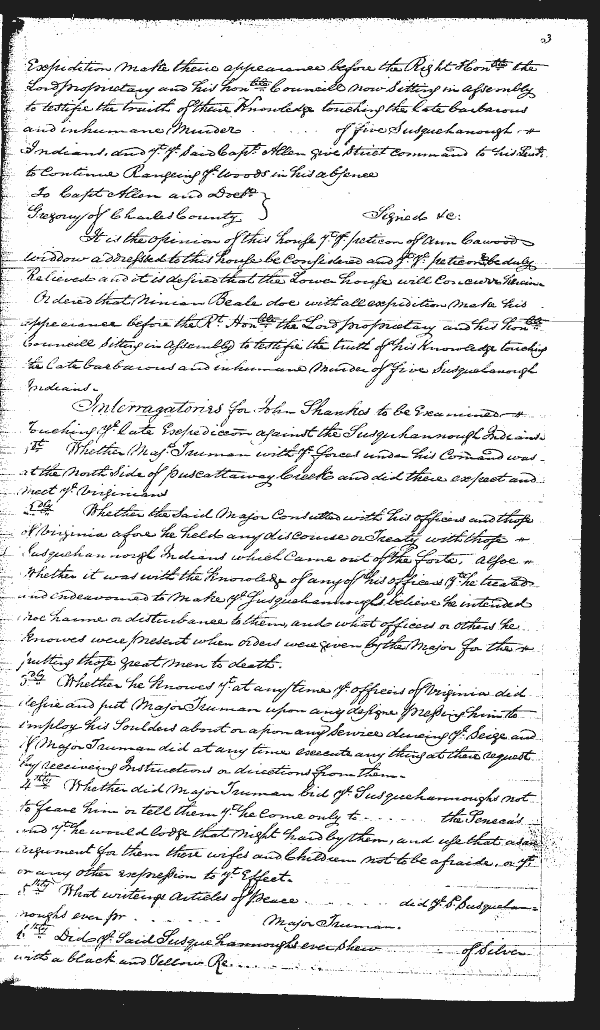 3
Expedition make there appearance before the Right Honble the
Lord proprietary and his honble Councill now Sitting in assembly
to testifie the truith of there Knowledge touching the late barbarous
and inhumane Murder . . . . . of five Susquehanough
Indians, and yt ye Said Capt Allen give Strict command to his
to Continue Rangeing ye woods in his absence
To Capt Allen and Doctr }
Gregory of Charles County } Signed &c:
It is the opinion of this house yt ye peticon of Ann Cawood
widdow addressed to this house be Considered and yt ye peticonr be duly
Relieved and it is desired that the Lower house will Concurr herein
Ordered that Ninian Beale doe with all expedition make his
appearance before the Rt Honble the Lord proprietary and his honble
Councill Sitting in Assembly to testifie the truth of his knowledge touching
the late barbarous and inhumane Murder of five Susquehanough
Indians.
Interragatories for John Shankes to be Examined
touching ye late Expedicon against the Susquehannough Indians
1st Whether Majr Truman with ye forces under his Comand was
at the North Side of puscattaway Creeke and did there expect and
meet ye Virginians
2dly Whether the Said Major Consulted with his officers and those
of Virginia afore he held any discourse or Treaty with those
Susquehannough Indians which Came out of the forte, alsoe
Whether it was with the knowledge of any of his officers yt he treated
and endeavoured to make ye Susquehannoughs believe he intended
noe harme or disturbance to them, and what officers or others he
knowes were present when orders were given by the Major for the
putting those great men to death.
3dly Whether he knowes yt at any time ye officers of Virginia did
desire and put Major Truman upon any designe pressing him to
imploy his Souldiers about or upon any Service dureing ye Seige and
if Major Truman did at any time execute any thing at there request
by receiveing Instructions or directions from them.
4thly Whether did Major Truman bid ye Susquehannoughs not
to feare him or tell them yt he come only to . . . . . the Seneca's
and yt he would lodge that night hard by them, and use that as an
argument for them there wifes and Children not to be afraide, or yt
or any other expression to yt Effect.
5thly What writeings Articles of peace . . . . . did ye Sd Susquehan=
noughs ever pr . . . . . Major Truman.
6thly Did ye Said Susquehannoughs ever shew of Silver
with a black and Yellow Re. . . . .